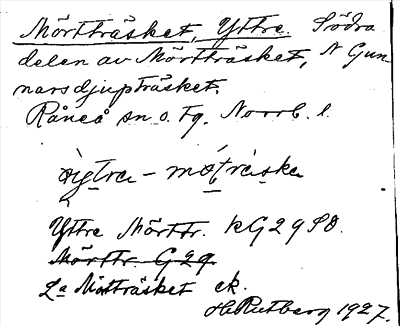 Mörtträsket, Yttre. Södra
delen av Mörtträsket, N Gun
narsdjupträsket.
Råneå sn o. tg. Norrb. l.
yttre Mörttr. KG 29 SO.
Mörttr. G 29.
La Mörtträsket ek.
H. Rutberg 1927.